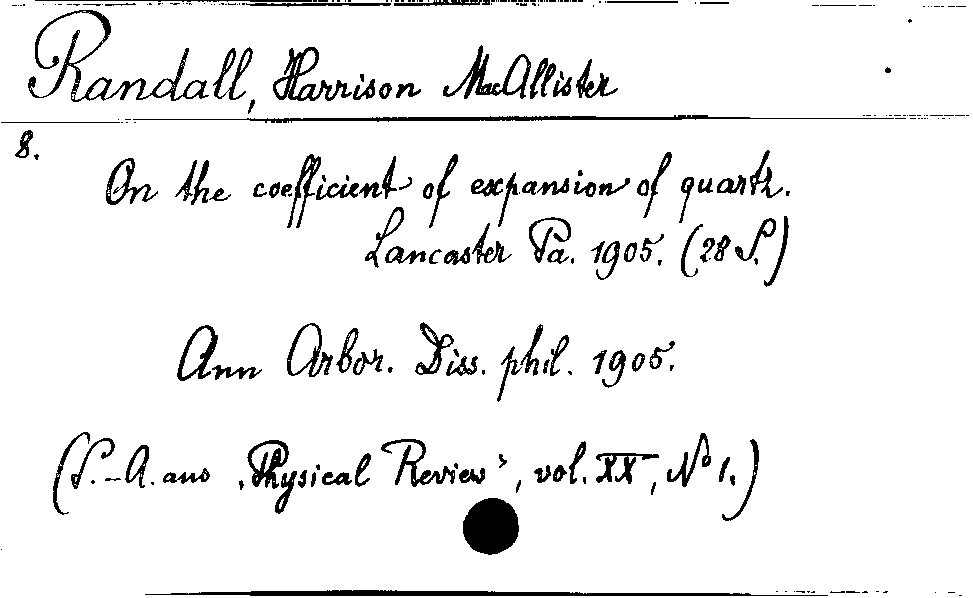 Randall, Harrison MacAllister
8.
On the coefficient of expansion of quartz.
Lancaster Pa. 1905. (28 S.)
Ann Arbor. Diss. phil. 1905.
(S.-A. aus „Physical Review", vol. XX, No 1.)